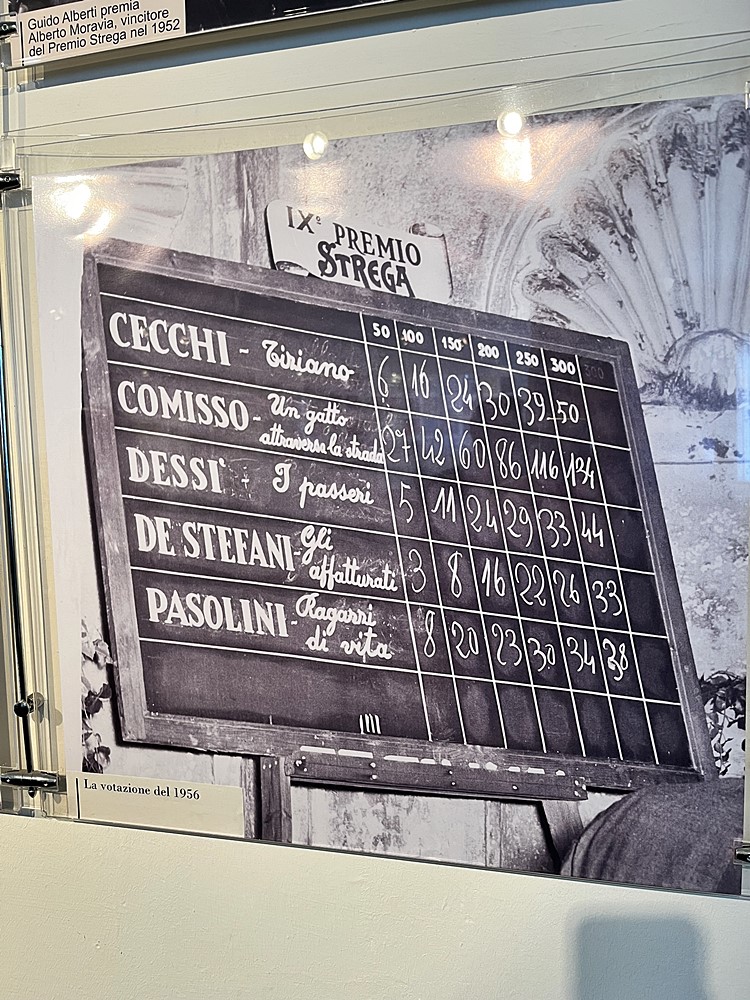 Guido Alberti premia
Alberto Moravia, vincitore
del Premio Strega nel 1952
IXº PREMIO
STREGA
50 100 150 200 250 300 300
CECCHI - Tiziano 6 16 24 30 39 50
COMISSO - Un gatto
attraversa la strada 27 42 60 86 116 134
DESSI' - I passeri 5 11 24 29 33 44
DE STEFANI - Gli
affatturati 3 8 16 22 26 33
PASOLINI - Ragazzi
di vita 8 20 23 30 34 38
La votazione del 1956